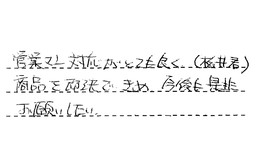 営業マン対応がとても良く(桜井君)
商品を頑張できめ 今後も是非
お願いしたい